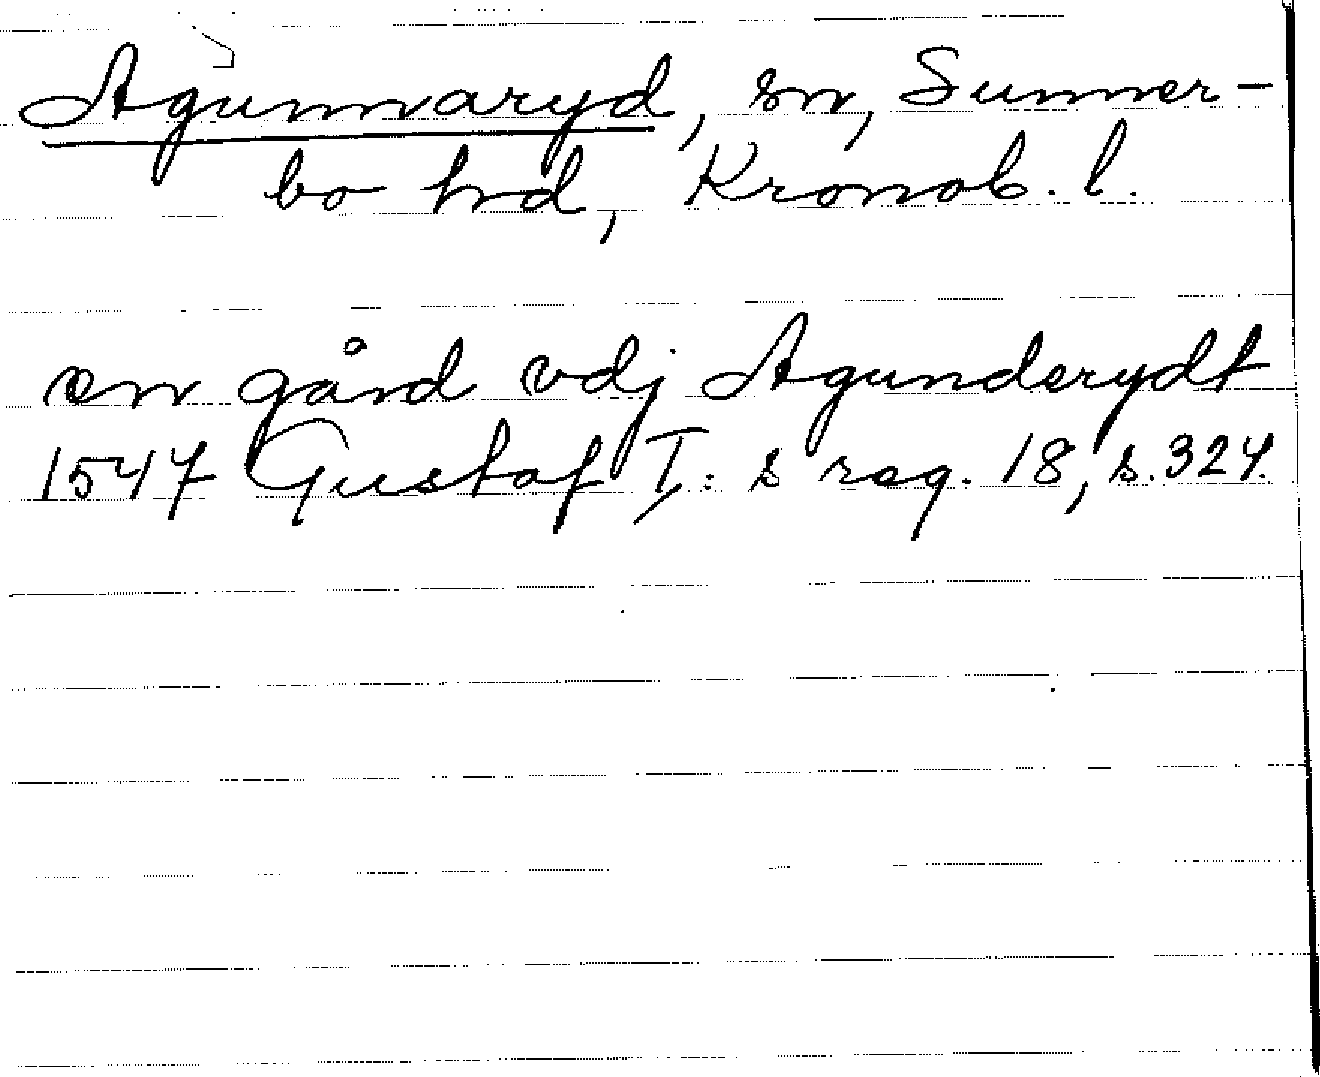 Agunnaryd, sn, Sunner-
bo hrd, Kronob. l.
en gård vdj Agunderydt
1547 Gustaf I: s reg. 18, s. 324.